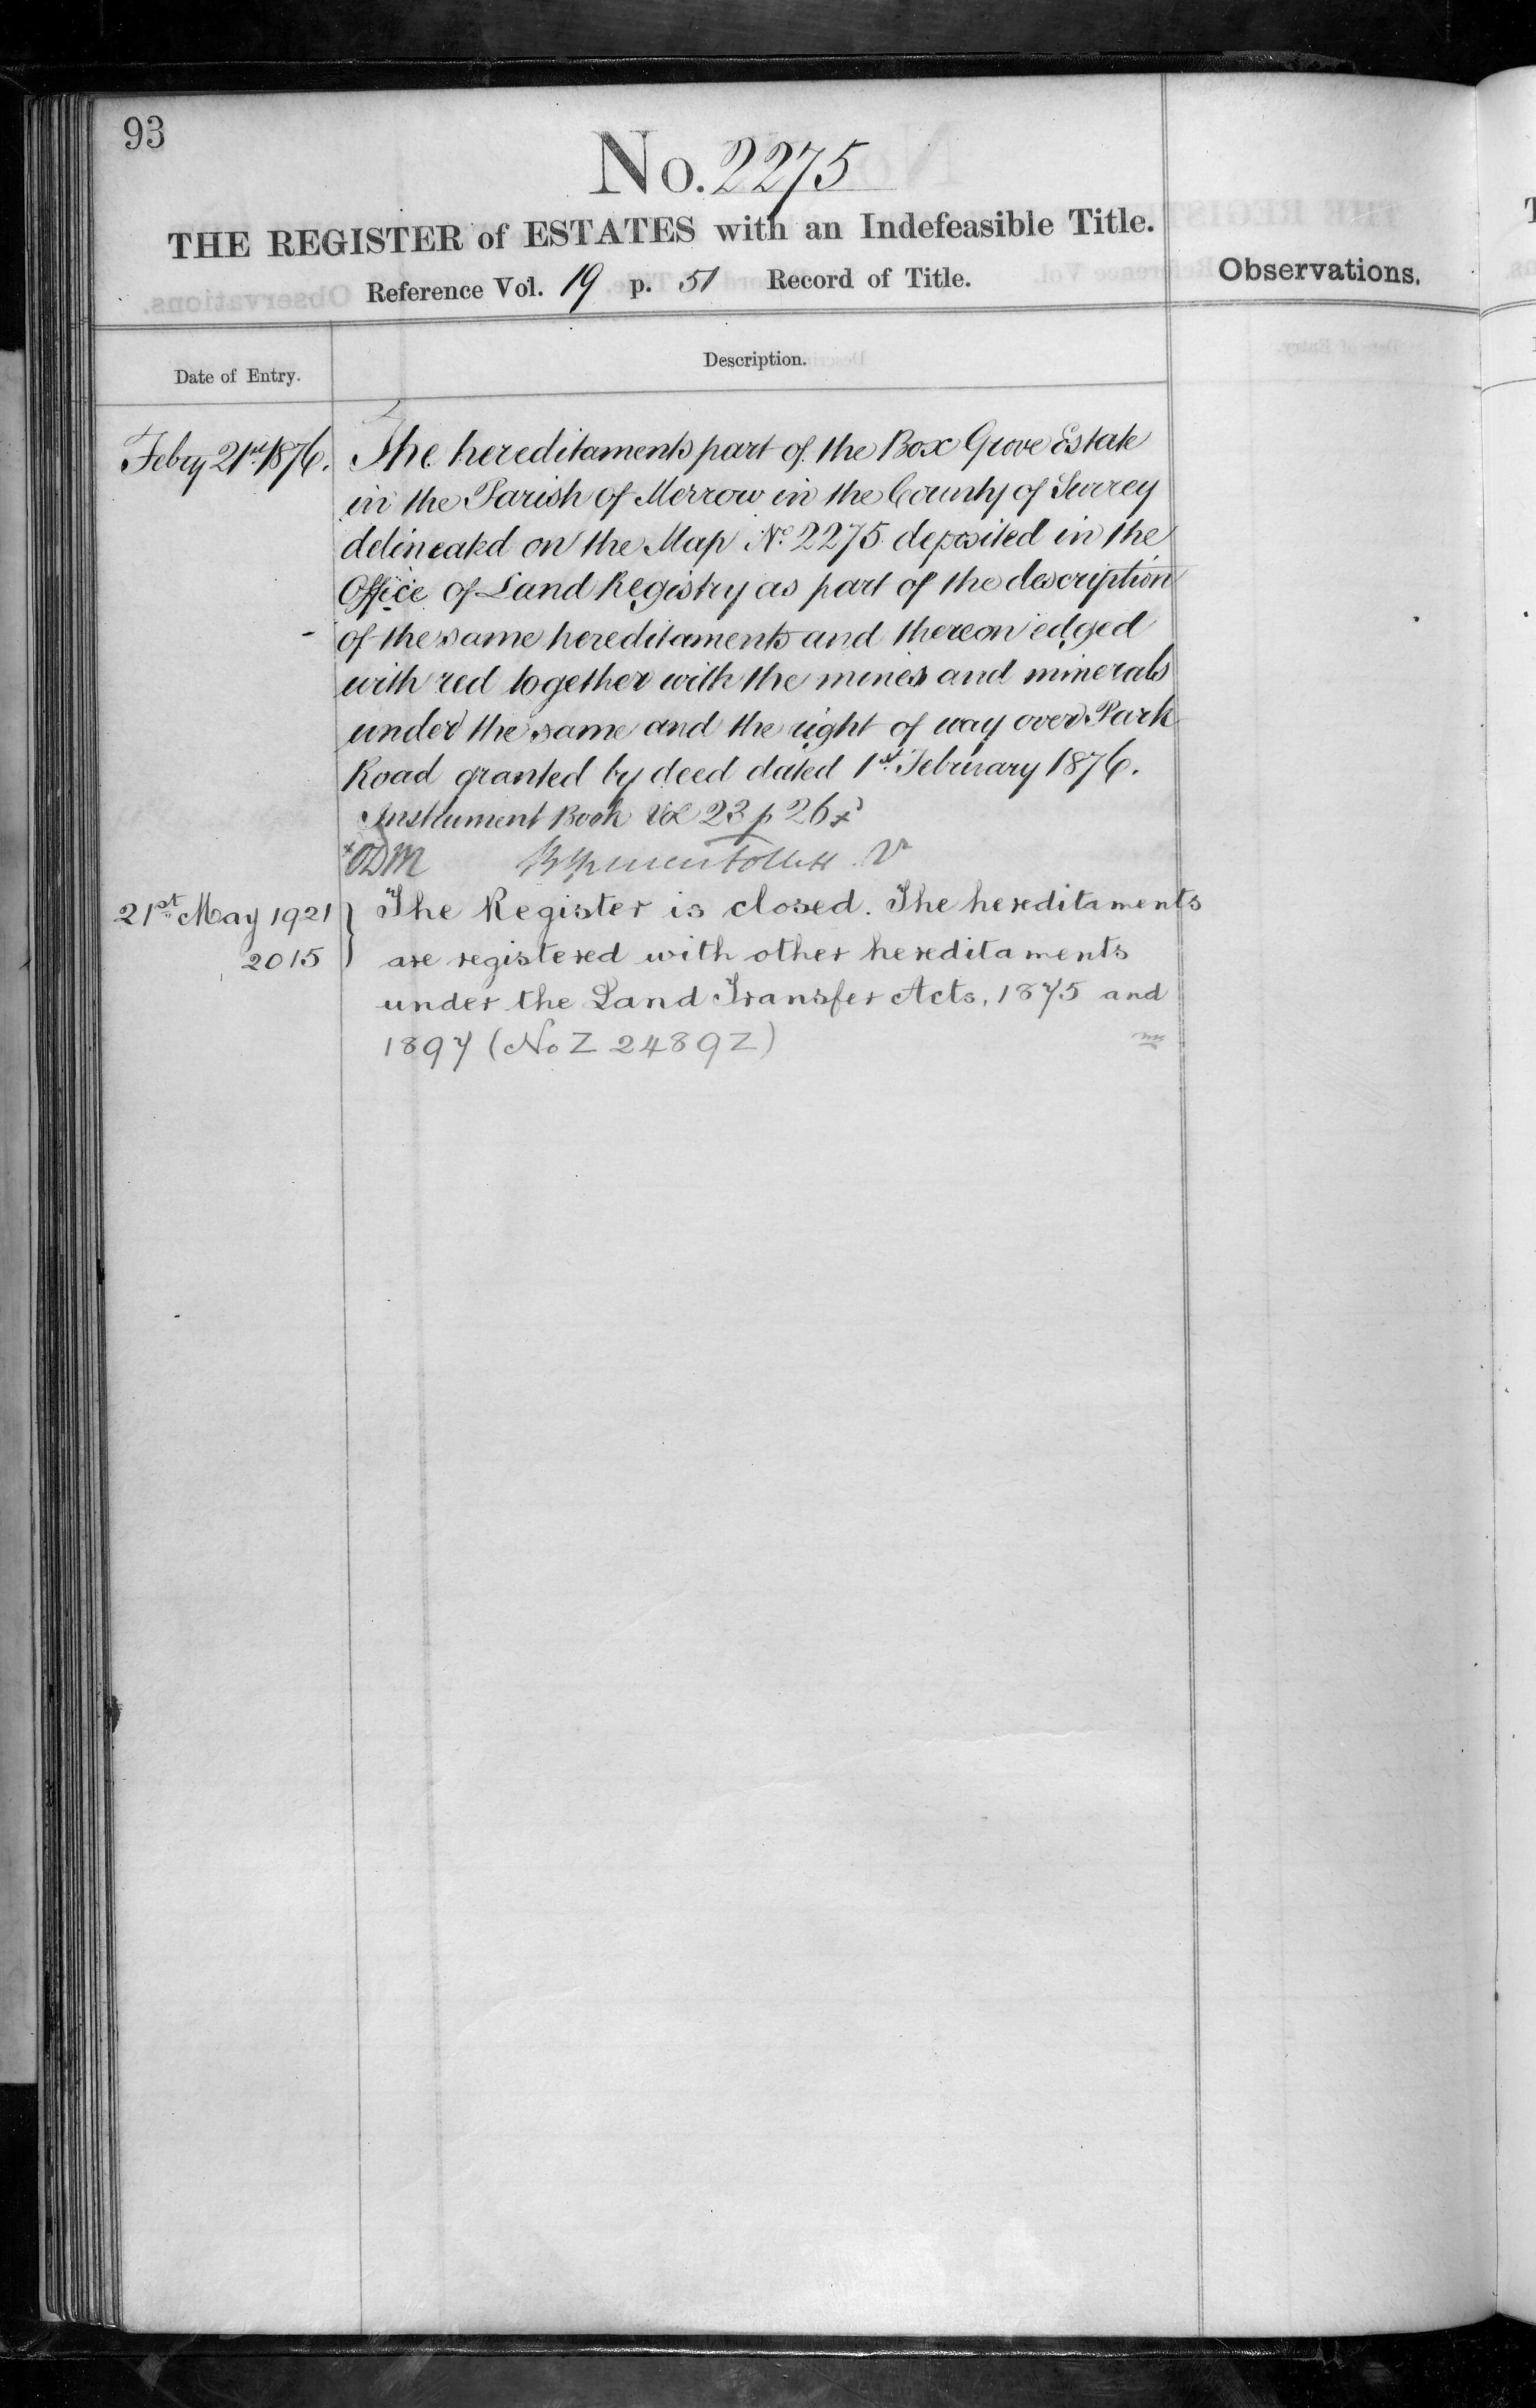 93
No. 2275
THE REGISTER of ESTATES with an Indefeasible Title.
Reference Vol. 19 p. 51 Record of Title.
Observations.
Date of Entry.
Description.
Febry 21st 1876. The hereditaments part of the Box Grove Estate
in the Parish of Merrow in the County of Surrey
delineated on the Map No. 2275 deposited in the
Office of Land Registry as part of the description
of the same hereditaments and thereon edged
with red together with the mines and minerals
under the same and the right of way over Park
Road granted by deed dated 1st February 1876.
Instrument Book Vol 23 p 26 x
x ODM
21st May 1921 The Register is closed. The hereditaments
2015 are registered with other hereditaments
under the Land Transfer Acts, 1875 and
1897 (No Z 2489Z)